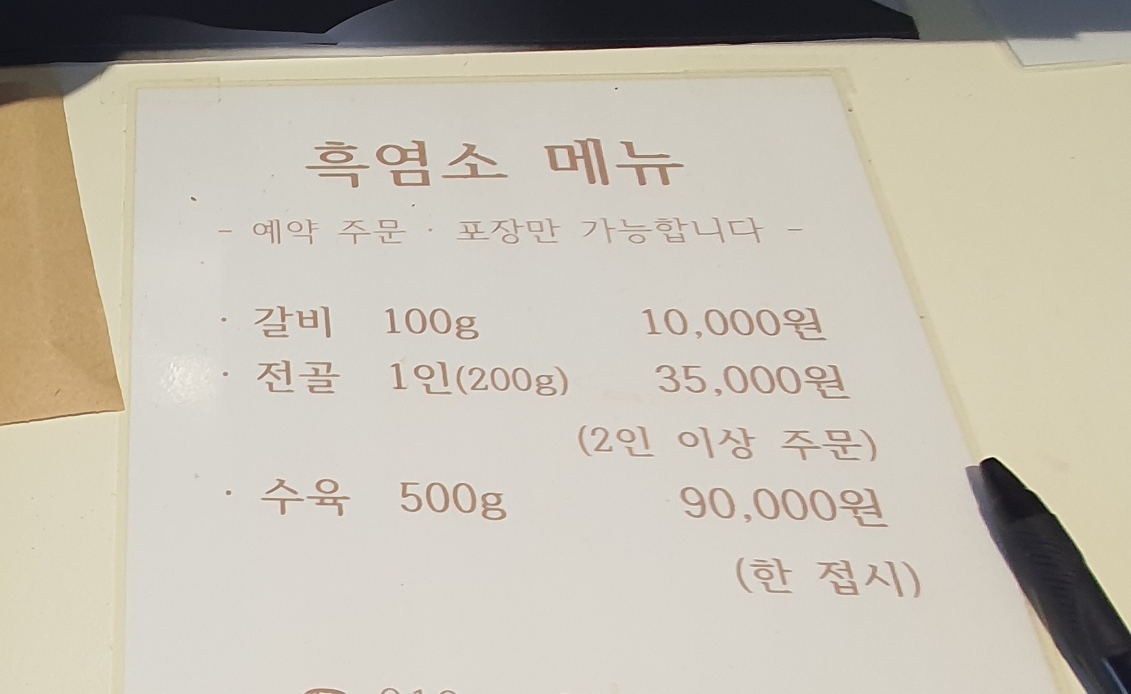 흑염소 메뉴
- 예약 주문 · 포장만 가능합니다 -
· 갈비 100g 10,000원
· 전골 1인(200g) 35,000원
(2인 이상 주문)
· 수육 500g 90,000원
(한 접시)